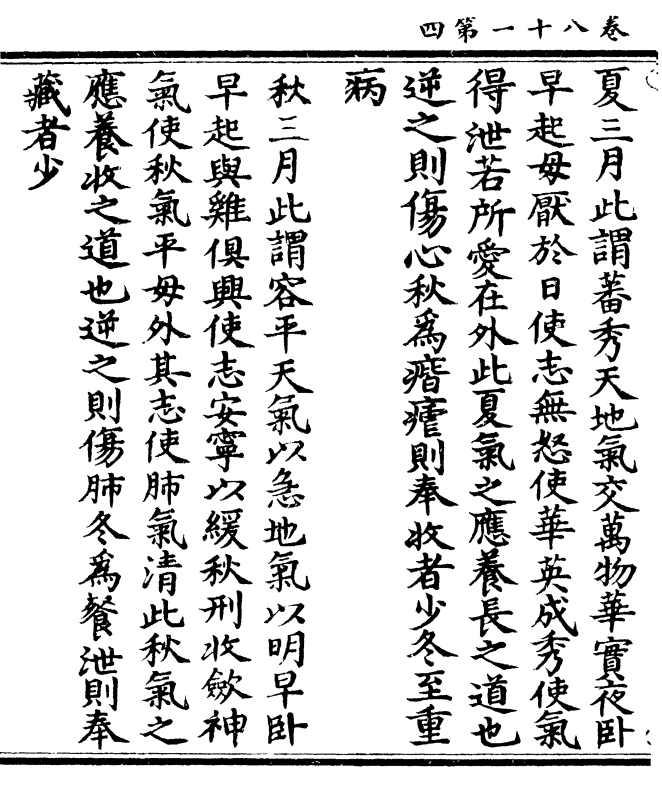 卷八十一第四
夏三月此謂蕃秀天地氣交萬物華實夜卧
早起毋厭於日使志無怒使華英成秀使氣
得泄若所愛在外此夏氣之應養長之道也
逆之則傷心秋爲痎瘧則奉收者少冬至重
病
秋三月此謂容平天氣以急地氣以明早卧
早起與雞俱興使志安寧以緩秋刑收歛神
氣使秋氣平毋外其志使肺氣清此秋氣之
應養收之道也逆之則傷肺冬爲餐泄則奉
藏者少